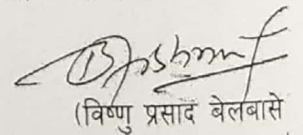 (विष्णु प्रसाद बेलबासे